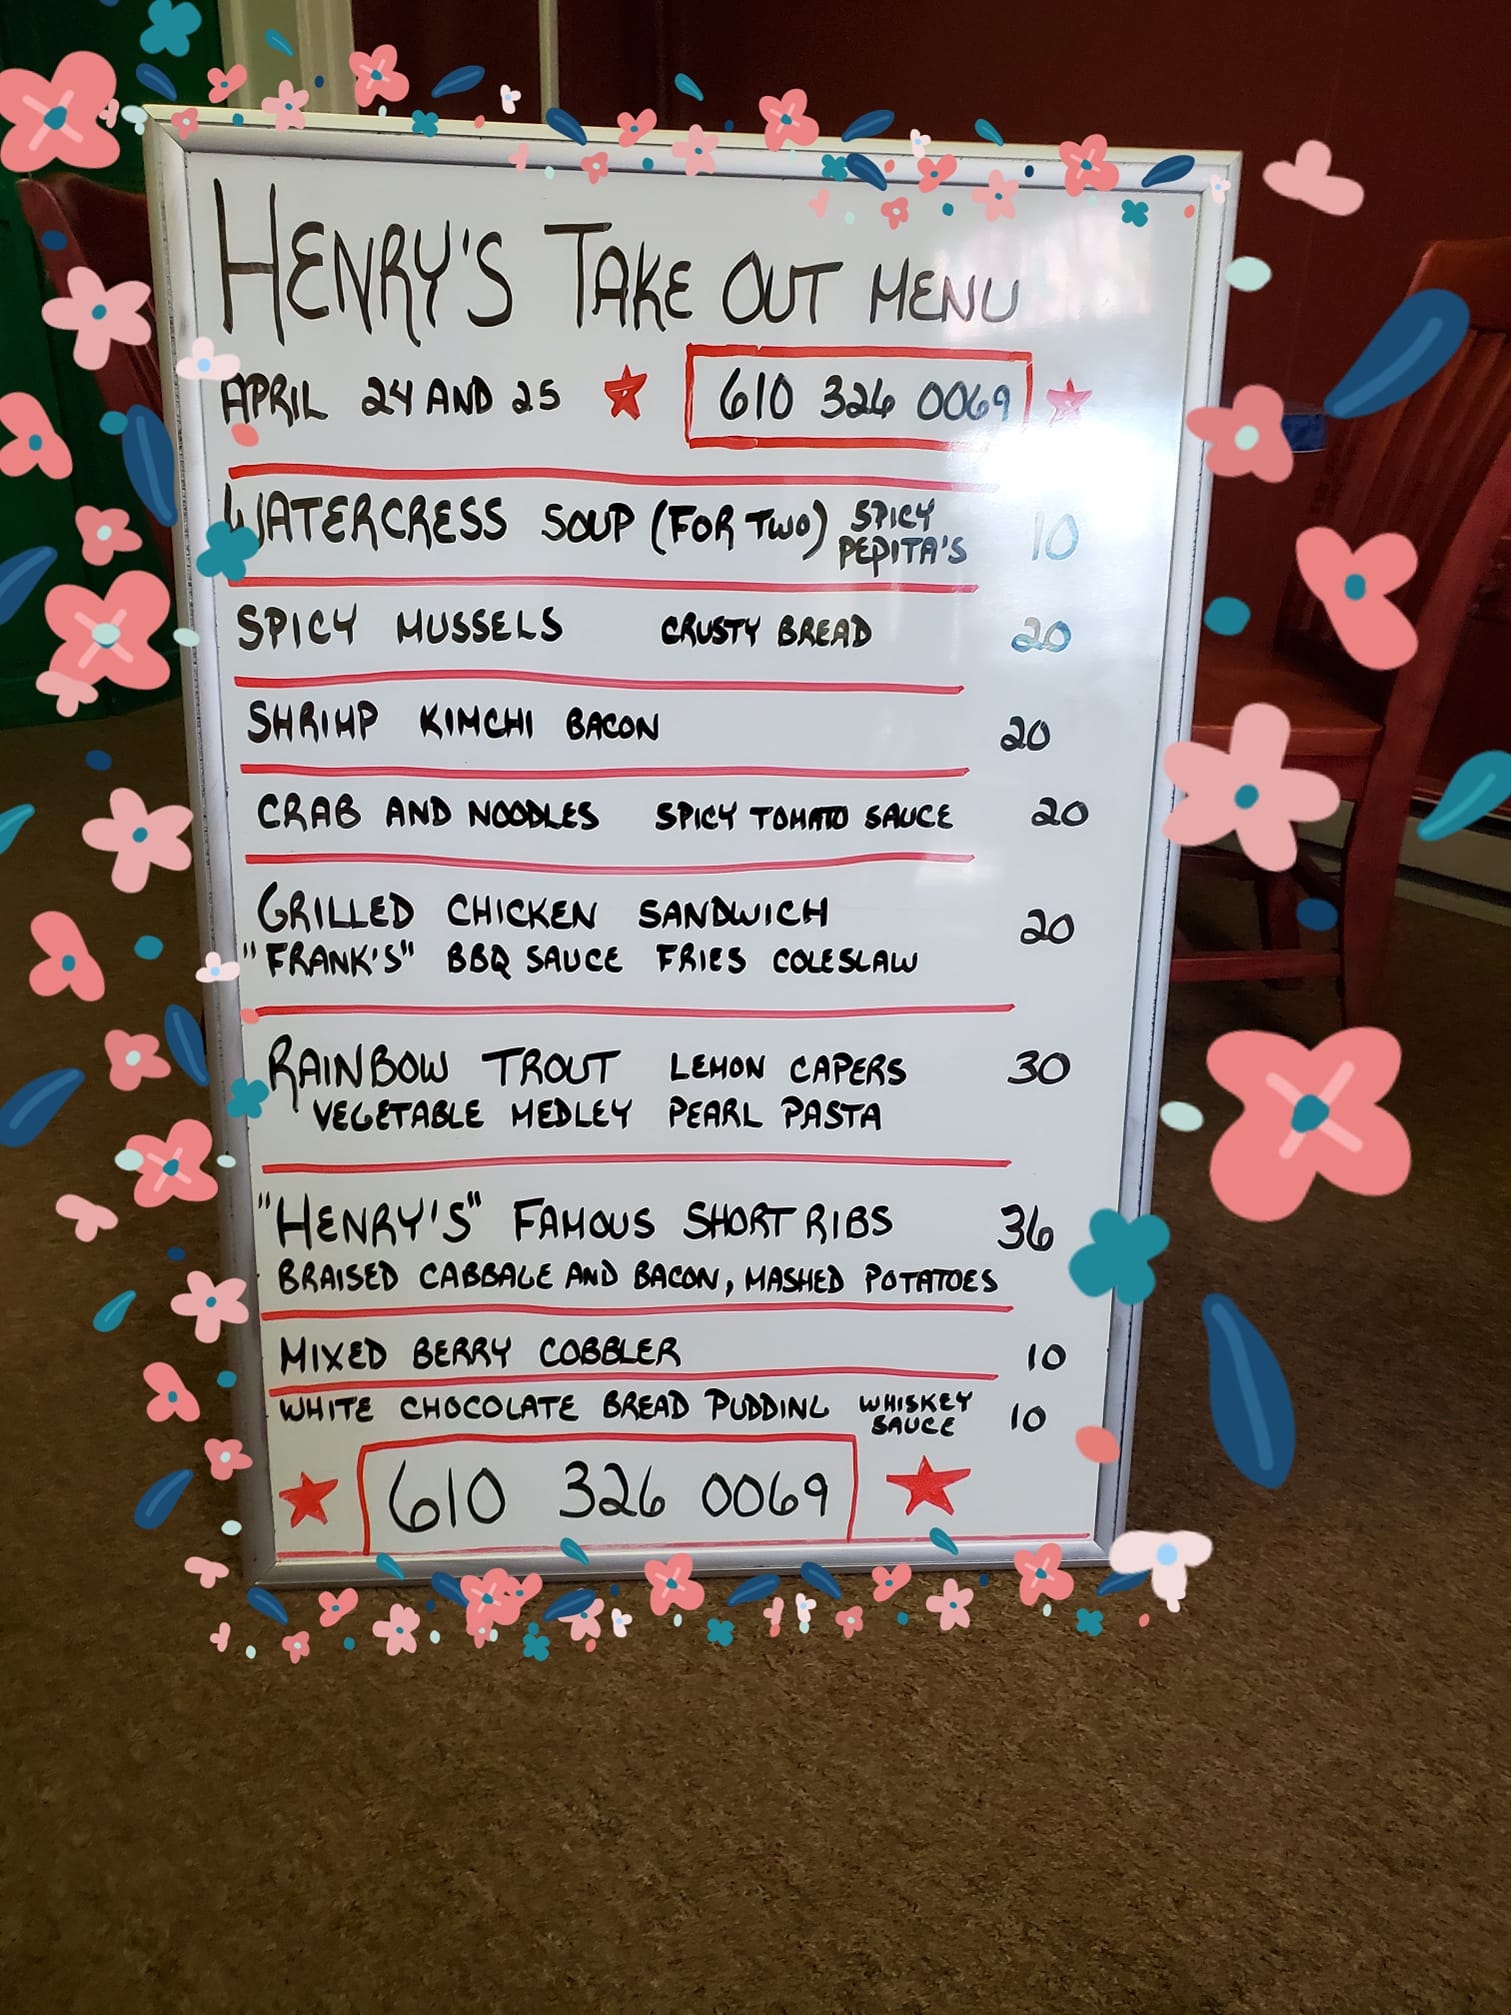 HENRY'S TAKE OUT MENU
APRIL 24 AND 25 610 326 0069
WATERCRESS SOUP (FOR TWO) SPICY PEPITA'S 10
SPICY MUSSELS CRUSTY BREAD 20
SHRIMP KIMCHI BACON 20
CRAB AND NOODLES SPICY TOMATO SAUCE 20
GRILLED CHICKEN SANDWICH 20
"FRANK'S" BBQ SAUCE FRIES COLESLAW
RAINBOW TROUT LEMON CAPERS 30
VEGETABLE MEDLEY PEARL PASTA
"HENRY'S" FAMOUS SHORT RIBS 36
BRAISED CABBAGE AND BACON, MASHED POTATOES
MIXED BERRY COBBLER 10
WHITE CHOCOLATE BREAD PUDDING WHISKEY SAUCE 10
610 326 0069